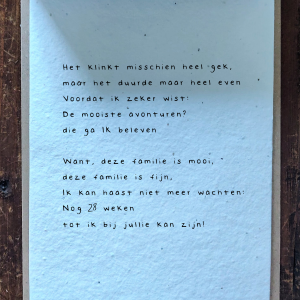 Het klinkt misschien heel gek,
maar het duurde maar heel even
Voordat ik zeker wist:
De mooiste avonturen?
die ga ik beleven

Want, deze familie is mooi,
deze familie is fijn,
Ik kan haast niet meer wachten:
Nog 28 weken
tot ik bij jullie kan zijn!